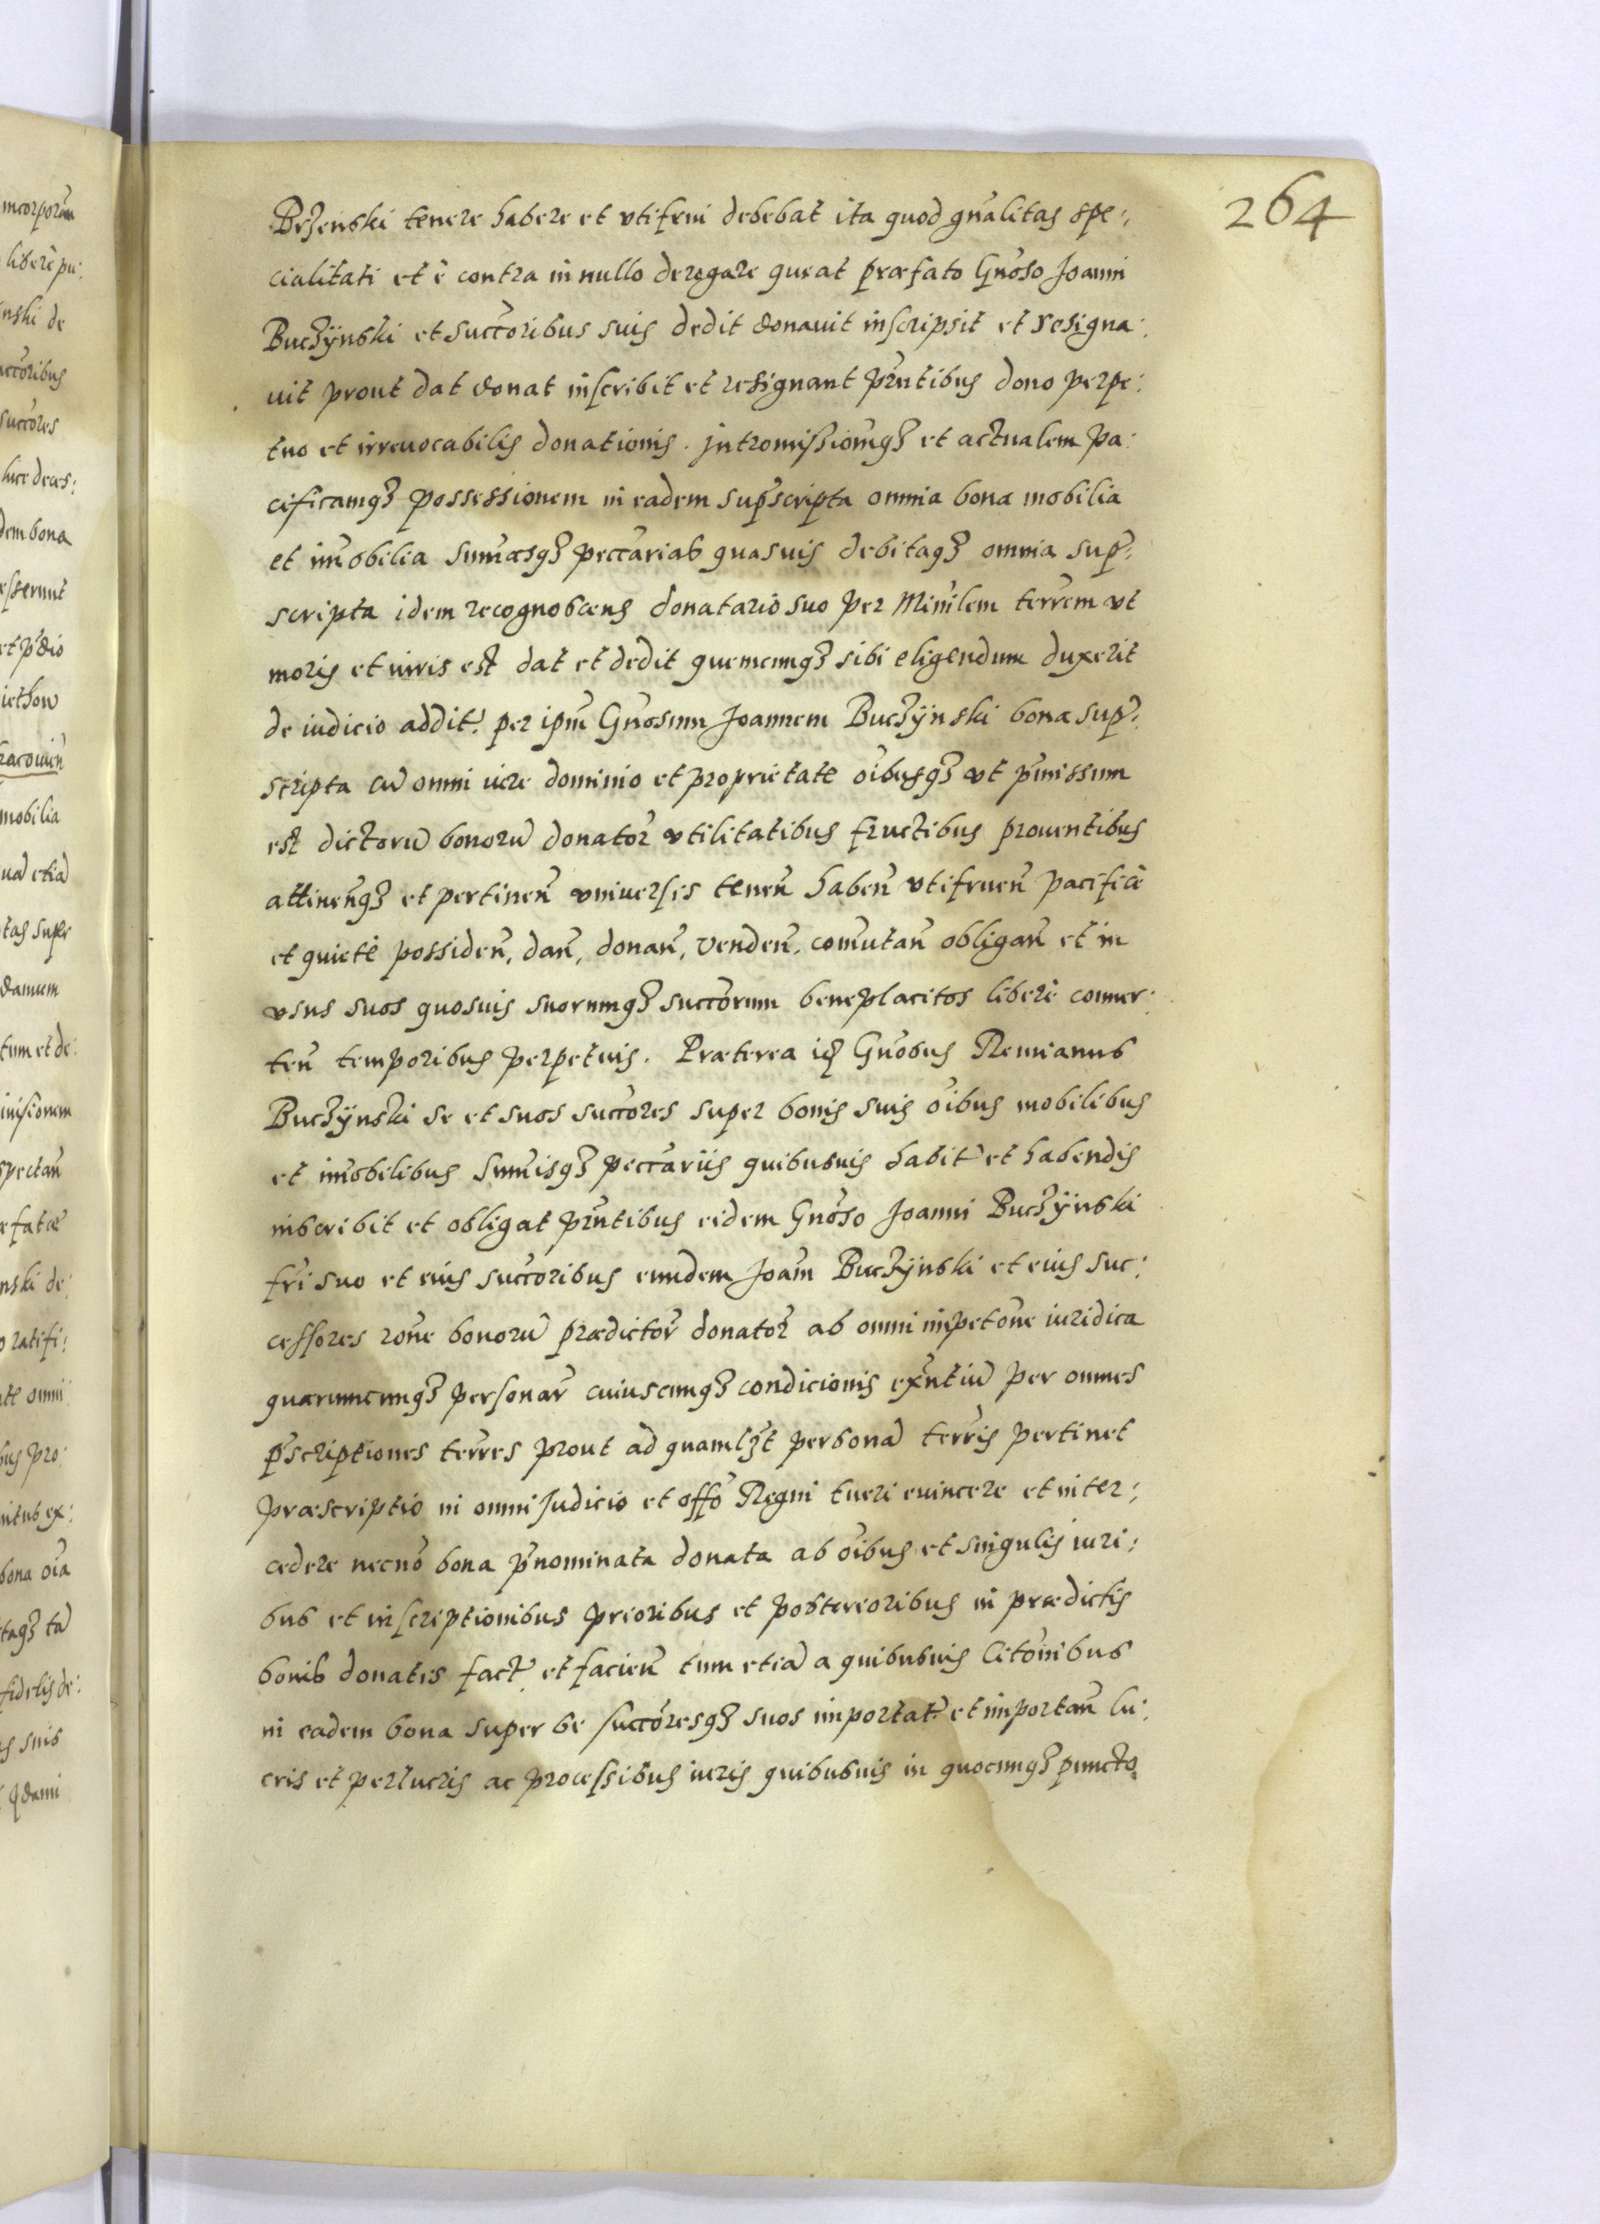 264
Brzenski tenere habere et vtifrui debebat ita quod gñalitas spe:
cialitati et è contra in nullo derogare queat præfato Gñoso Joanni
Buczÿnski et succ̃oribus suis dedit donauit inscripsit et resigna:
uit prout dat donat inscribit et resignant pñtibus dono perpe:
tuo et irreuocabilis donationis. jntromissionemq3 et actualem pa:
cificamq3 possessionem in eadem sup̃scripta omnia bona mobilia
et im̃obilia sum̃asq3 pecc̃arias quasuis debitaq3 omnia sup̃:
scripta idem recognoscens donatario suo per Minĩlem terr̃em vt
moris et iuris est dat et dedit quemcunq3 sibi eligendum duxerit
de iudicio addit̃: per ipm̃ Gñosum Joannem Buczÿnski bona sup̃:
scripta cũ omni iure dominio et proprietate oĩbusq3 vt p̃missum
est dictorũ bonorũ donator̃ vtilitatibus fructibus prouentibus
attineñq3 et pertineñ vniuersis teneñ habeñ vtifrueñ pacificè
et quietè possideñ, dañ, donañ, vendeñ, com̃utañ obligañ et in
vsus suos quosuis suorumq3 succ̃orum beneplacitos liberè conuer:
teñ temporibus perpetuis. Præterea iq3 Gñosus Remianus
Buczÿnski se et suos succ̃ores super bonis suis oĩbus mobilibus
et im̃obilibus sum̃isq3 pecc̃ariis quibusuis habit̃ et habendis
inscribit et obligat pñtibus eidem Gñoso Joanni Buczÿnski
frĩ suo et eius succ̃oribus eundem Joañ Buczÿnski et eius suc:
cessores rõne bonorũ prædictor̃ donator̃ ab omni inpetõne iuridica
quarumcunq3 personar̃ cuiuscunq3 condicionis exñtiũ per omnes
p̃scriptiones terr̃es prout ad quamlz̃t personã terrĩs pertinet
præscriptio in omni Judicio et offõ Regni tueri euincere et inter:
cedere necnõ bona p̃nominata donata ab oĩbus et singulis iuri:
bus et inscriptionibus prioribus et posterioribus in prædictis
bonis donatis fact̃ et facieñ tum etiã a quibusuis litõnibus
in eadem bona super se succ̃oresq3 suos importat̃ et importañ lu:
cris et perlucris ac processibus iuris quibusuis in quocunq3 puncto